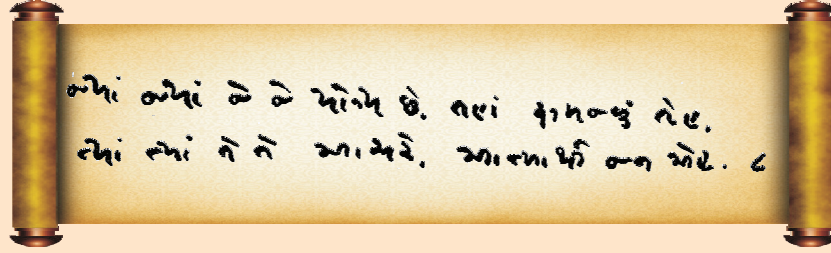 જ્યાં જ્યાં જે જે યોગ્ય છે, તહાં સમજવું તેહ,
ત્યાં ત્યાં તે તે આચરે, આત્માર્થી જન એહ. ૮